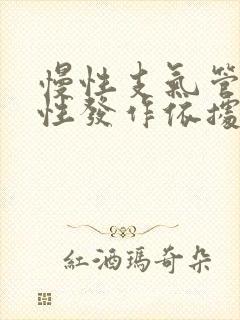 慢性支氣管
性發作依據
紅酒瑪奇朵